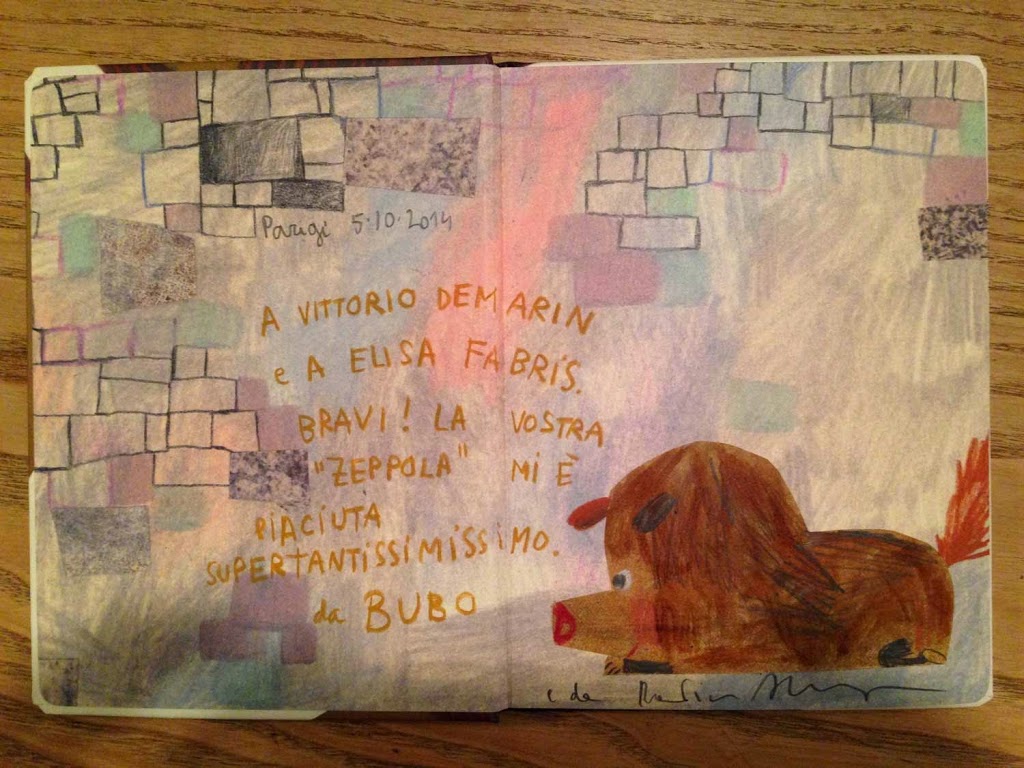 Parigi 5·10·2014
A VITTORIO DEMARIN
e A ELISA FABRIS.
BRAVI! LA VOSTRA
"ZEPPOLA" MI È
PIACIUTA
SUPERTANTISSIMISSIMO.
da BUBO
e da